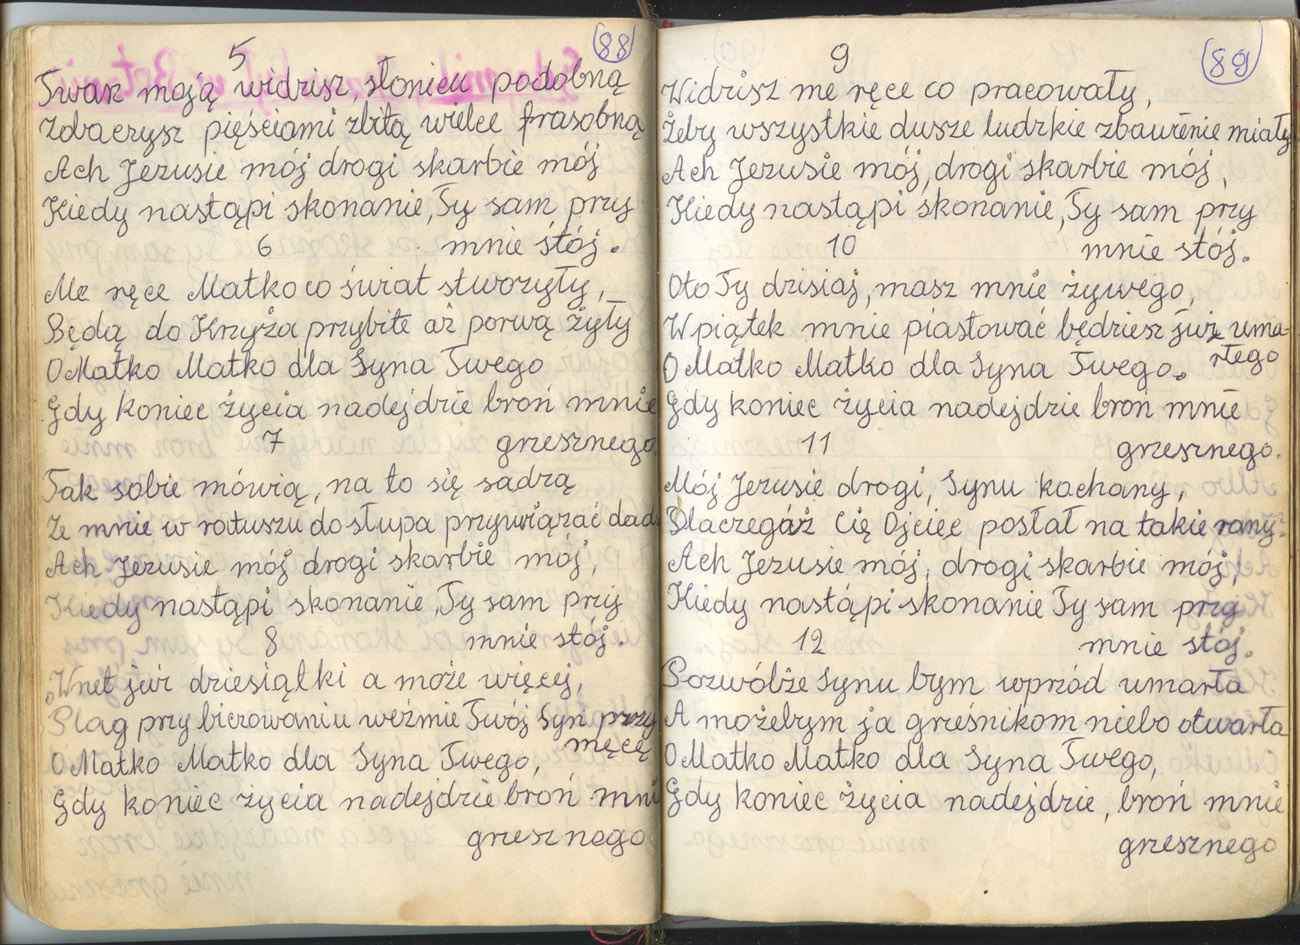 (88)
5
Twarz moją widzisz, słońcu podobną
Zobaczysz pięściami zbitą wielce frasobną
Ach Jezusie mój drogi skarbie mój
Kiedy nastąpi skonanie, Ty sam przy
6 mnie stój.
Me ręce Matko co świat stworzyły,
Będą do Krzyża przybite aż porwą żyły
O Matko Matko dla Syna Twego
Gdy koniec życia nadejdzie broń mnie
7 grzesznego.
Tak sobie mówią, na to się sadzą
Że mnie w ratuszu do słupa przywiązać dadz
Ach Jezusie mój drogi skarbie mój,
Kiedy nastąpi skonanie, Ty sam przy
8 mnie stój.
Wnet już dziesiątki a może więcej,
Plag przy biczowaniu weźmie Twój Syn przy
męcę
O Matko Matko dla Syna Twego,
Gdy koniec życia nadejdzie broń mni
grzesznego
(89)
9
Widzisz me ręce co pracowały,
Żeby wszystkie dusze ludzkie zbawienie miały
Ach Jezusie mój, drogi skarbie mój,
Kiedy nastąpi skonanie, Ty sam przy
10 mnie stój.
Oto Ty dzisiaj, masz mnie żywego
W piątek mnie piastować będziesz już uma-
rłego
O Matko Matko dla Syna Twego.
Gdy koniec życia nadejdzie broń mnie
11 grzesznego.
Mój Jezusie drogi, Synu kochany,
Dlaczegóż Cię Ojciec posłał na takie rany?
Ach Jezusie mój, drogi skarbie mój,
Kiedy nastąpi skonanie Ty sam przy
12 mnie stój.
Pozwólże Synu bym wprzód umarła
A możebym ja grześnikom niebo otwarła
O Matko Matko dla Syna Twego,
Gdy koniec życia nadejdzie, broń mnie
grzesznego